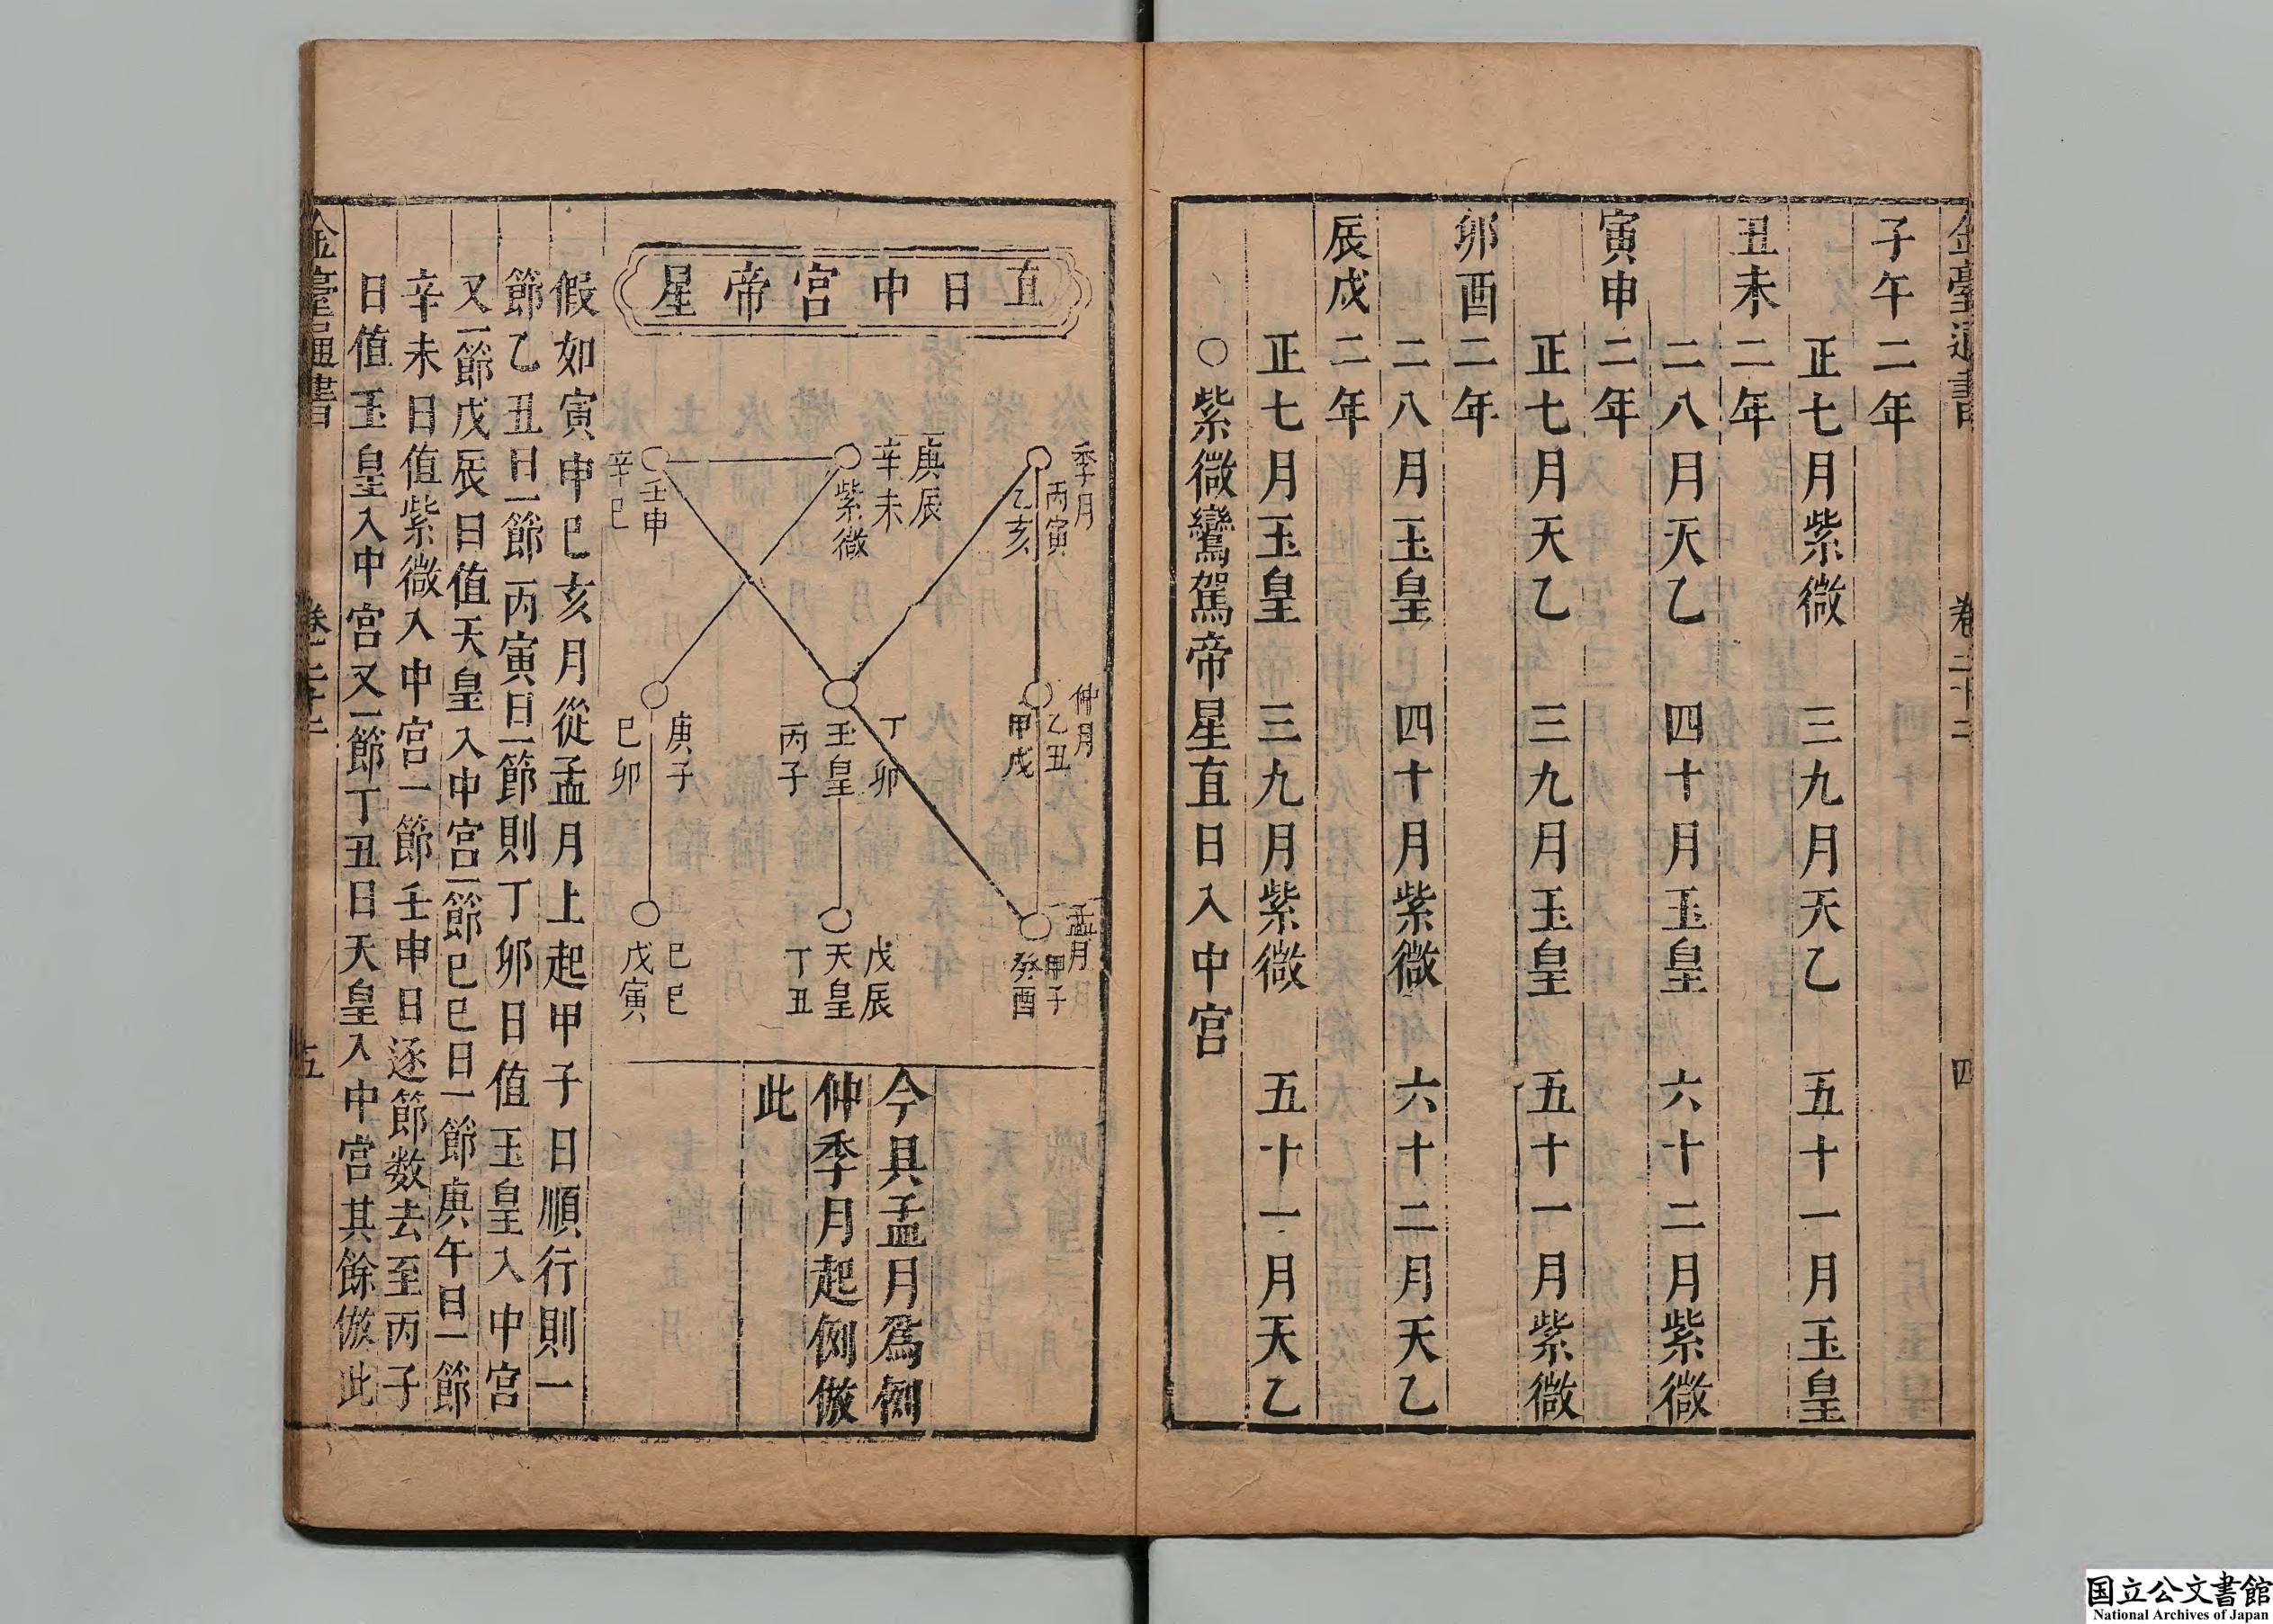 金臺通書 卷二十二 四
子午二年
正七月紫微 三九月天乙 五十一月玉皇
丑未二年
二八月天乙 四十月玉皇 六十二月紫微
寅申二年
正七月天乙 三九月玉皇 五十一月紫微
卯酉二年
二八月玉皇 四十月紫微 六十二月天乙
辰戌二年
正七月玉皇 三九月紫微 五十一月天乙
○紫微鸞駕帝星直日入中宮
直日中宮帝星
季月
丙寅
乙亥
庚辰
辛未
紫微
壬申
辛巳
仲月
乙丑
甲戌
丁卯
玉皇
丙子
庚子
巳卯
孟月
甲子
癸酉
戊辰
天皇
丁丑
巳巳
戊寅
今具孟月為例
仲季月起例倣
此
假如寅申巳亥月從孟月上起甲子日順行則一
節乙丑日一節丙寅日一節則丁卯日值玉皇入中宮
又一節戊辰日值天皇入中宮一節巳巳日一節庚午日一節
辛未日值紫微入中宮一節壬申日逐節数去至丙子
日值玉皇入中宮又一節丁丑日天皇入中宮其餘倣此
金臺通書 卷二十二 五
国立公文書館
National Archives of Japan